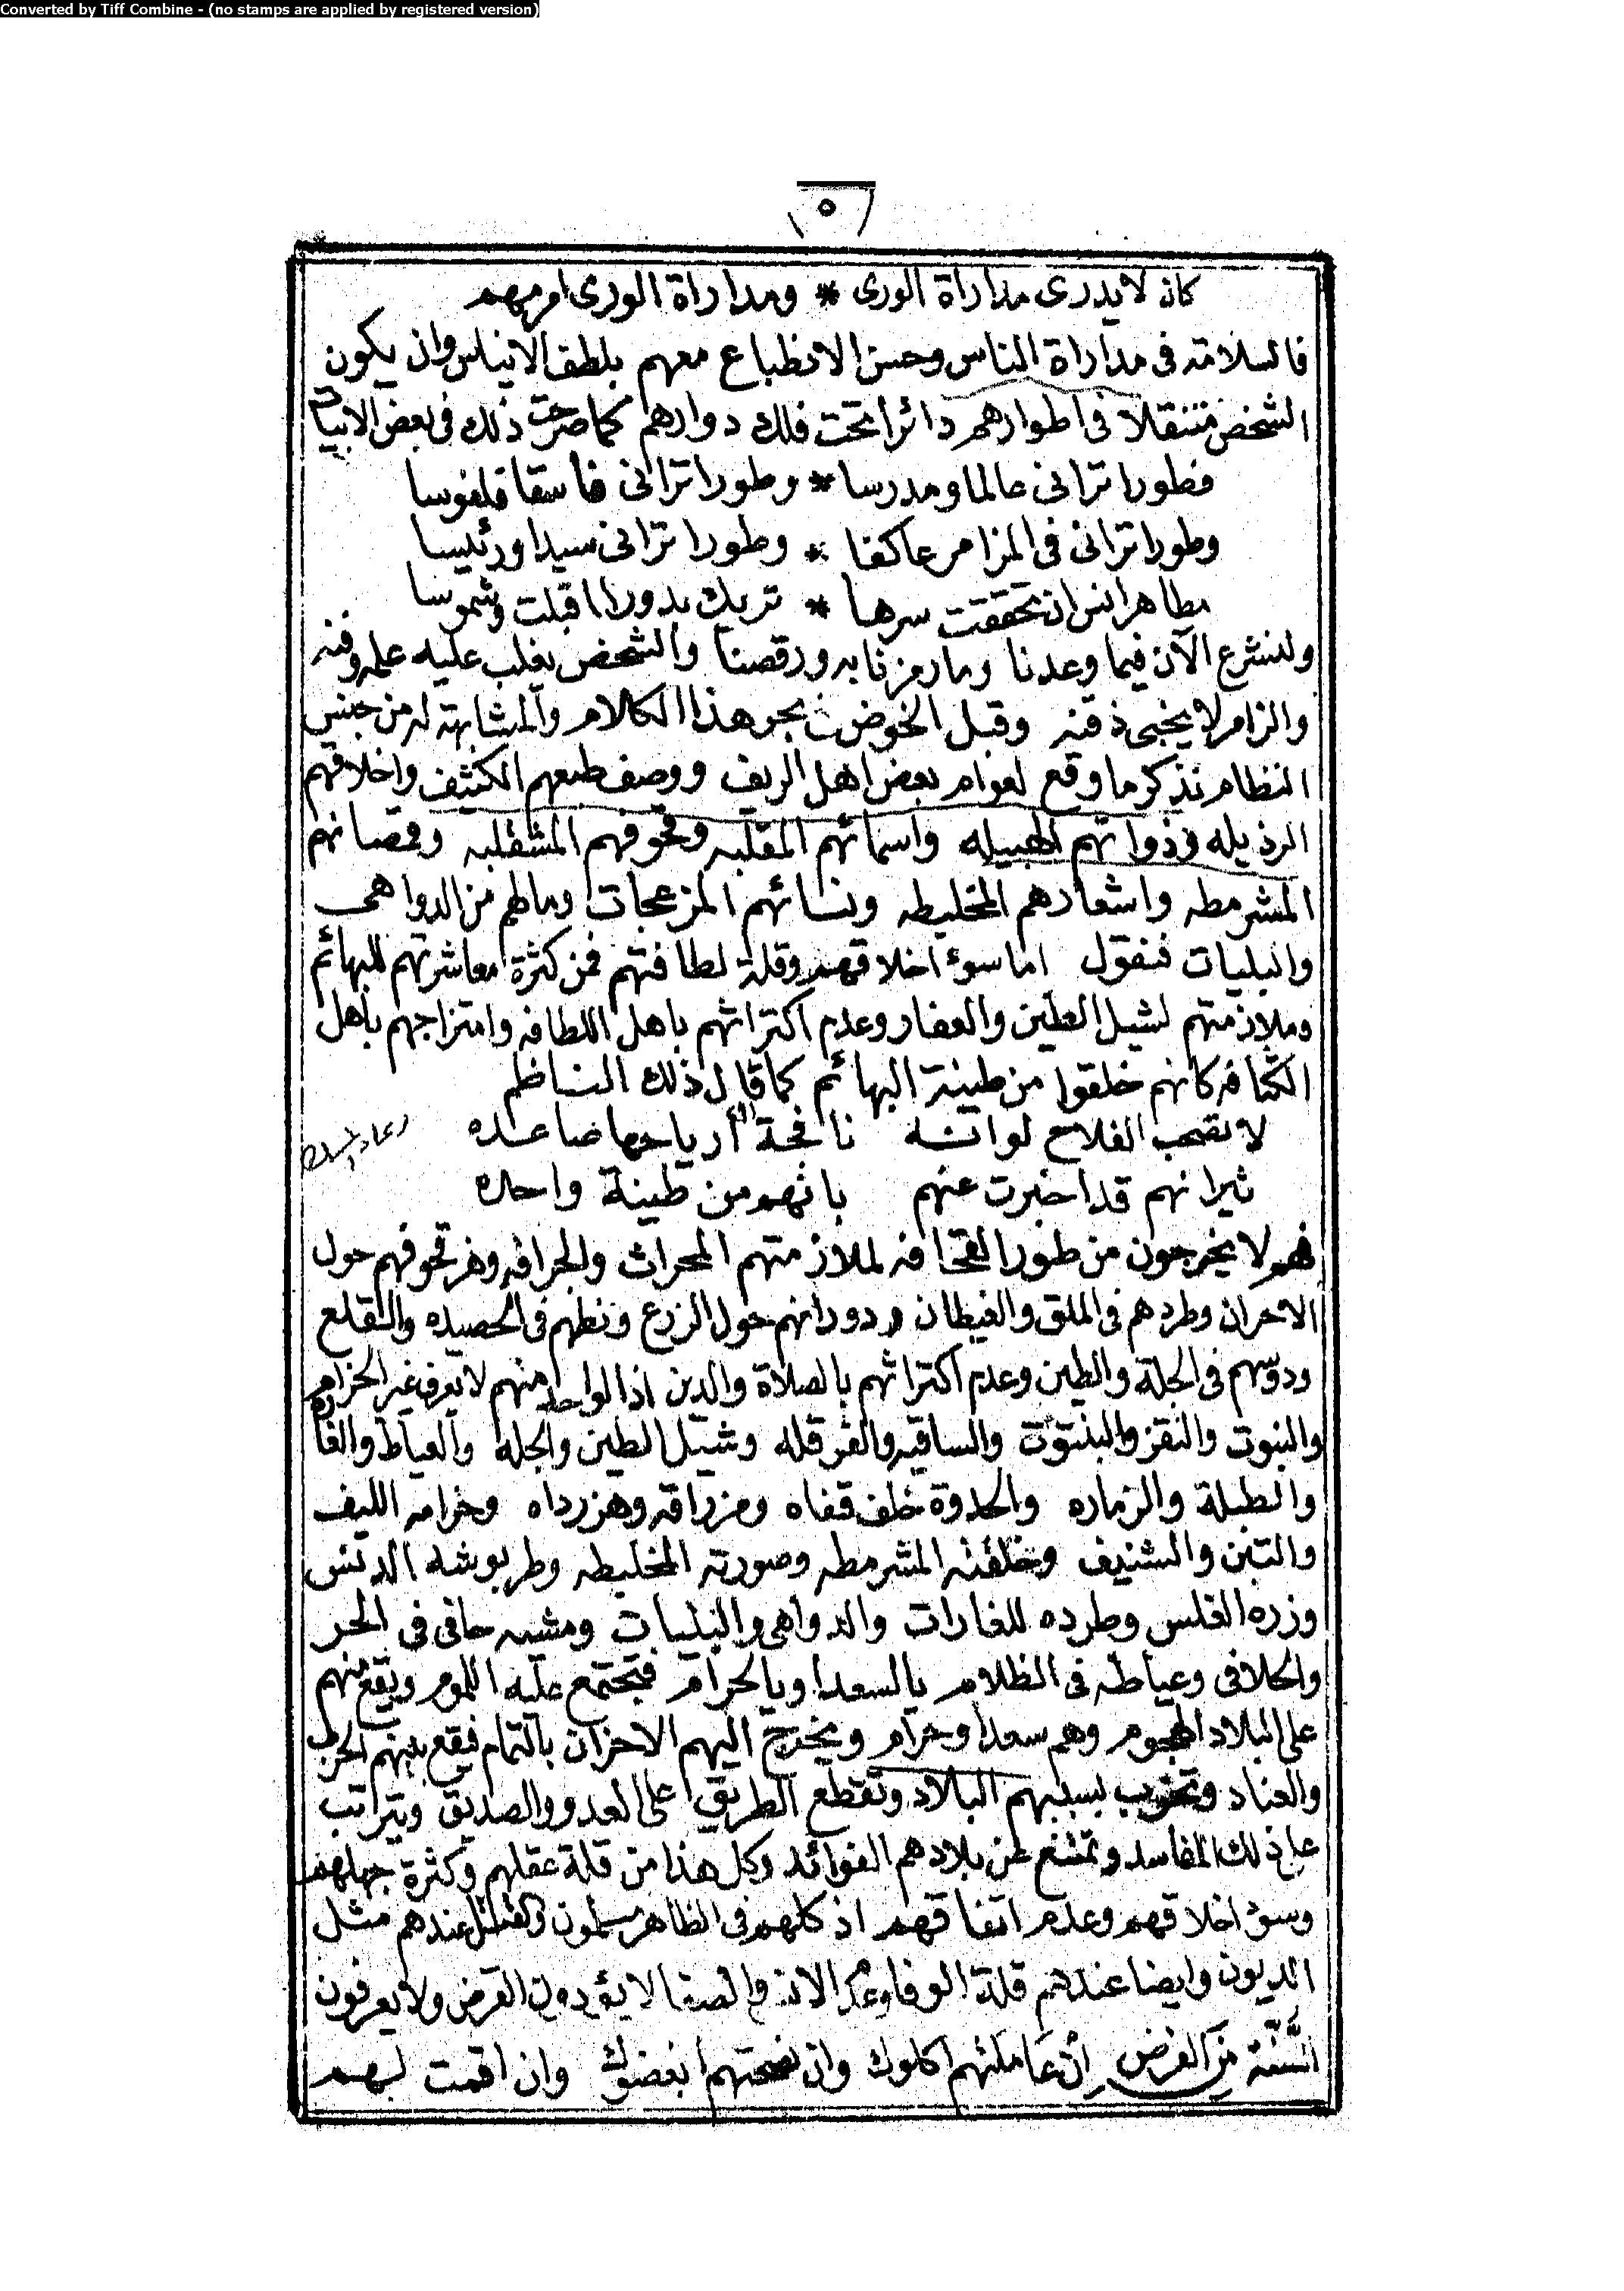 Converted by Tiff Combine - (no stamps are applied by registered version)
٥
كان لا يدرى مداراة الورى * ومداراة الورى امر مهم
فالسلامه فى مداراة الناس وحسن الانطباع معهم بلطف الايناس وان يكون
الشخص متنقلا فى اطوارهم دائرا تحت فلك دوارهم كما صرحت ذلك فى بعض الابيات
فطورا ترانى عالما ومدرسا * وطورا ترانى فاسقا فلفوسا
وطورا ترانى فى المزامر عاكفا * وطورا ترانى سيدا ورئيسا
مظاهر انس ان تحققت سرها * تريك بدورا اقبلت وشموسا
ولنشرع الآن فيما وعدنا وما رمزنا به ورقصنا والشخص يغلب عليه علمه وفنه
والزامر لا يخبى ذقنه وقبل الخوض فى بحر هذا الكلام والمشابهته له من جنس
النظام نذكر ما وقع لعوام بعض اهل الريف ووصف طبعهم الكثيف واخلاقهم
الرذيله وذواتهم الهبيله واسمائهم المقلبه وقحوفهم المشقلبه وقمصانهم
المشرمطه واشعارهم المخليطه ونسائهم المزعجات ومالهم من الدواهى
والبليات فنقول اما سوء اخلاقهم وقلة لطافتهم فمن كثرة معاشرتهم للبهائم
وملازمتهم لشيل الطين والعفار وعدم اكتراثهم باهل اللطافه وامتزاجهم باهل
الكثافه كانهم خلقوا من طينة البهائم كما قال ذلك الناظم
لا تصحب الفلاح لو انه نافجة أرياحها صاعده
ثيرانهم قد اخبرت عنهم بانهم من طينة واحده
فهم لا يخرجون من طور القحافه لملازمتهم المحراث والجرافه وهز قحوفهم حول
الاجران وطردهم فى الملق والغيطان ودورانهم حول الزرع ونطهم فى الحصيده والقلع
ودوسهم فى الجلة والطين وعدم اكتراثهم بالصلاة والدين اذ الواحد منهم لا يعرف غير الحزام
والنبوت والنقز والبنتوت والساقيه والفرقله وشيل الطين والجله والعياط والغاره
والطبلة والزماره والحدوة خلف قفاه ومزراقه وهز رداه وحزامه الليف
والتبن والشنيف وخلقته المشرمطه وصورته المخليطه وطربوشه الدنس
وزره الغلس وطرده للغارات والدواهى والبليات ومشيه حافى فى الحر
والحلافى وعياطه فى الظلام يالسعد او يالحرام فيجتمع عليه اللموم ويقع منهم
على البلاد الهجوم وهم سعد وحرام ويخرج اليهم الاحزان بالتمام فيقع بينهم الحرب
والعناد وتخرب بسببهم البلاد وتقطع الطريق على العدو والصديق ويتراتب
على ذلك المفاسد وتمتنع عن بلادهم الفوائد وكل هذا من قلة عقلهم وكثرة جهلهم
وسوء اخلاقهم وعدم اتفاقهم اذ كلهم فى الظاهر مسلمون والقتل عندهم مثل
الديون وايضا عندهم قلة الوفا وعدم والصفا لا يؤدون القرض ولا يعرفون
السنة من الفرض ان عاملتهم اكلوك وان نصحتهم ابغضوك وان اقمت لهم